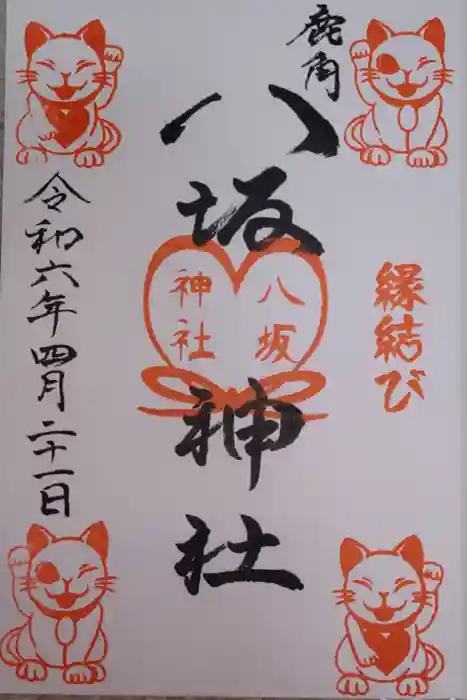 鹿角
縁結び
八坂神社
八坂
神社
令和六年四月二十一日